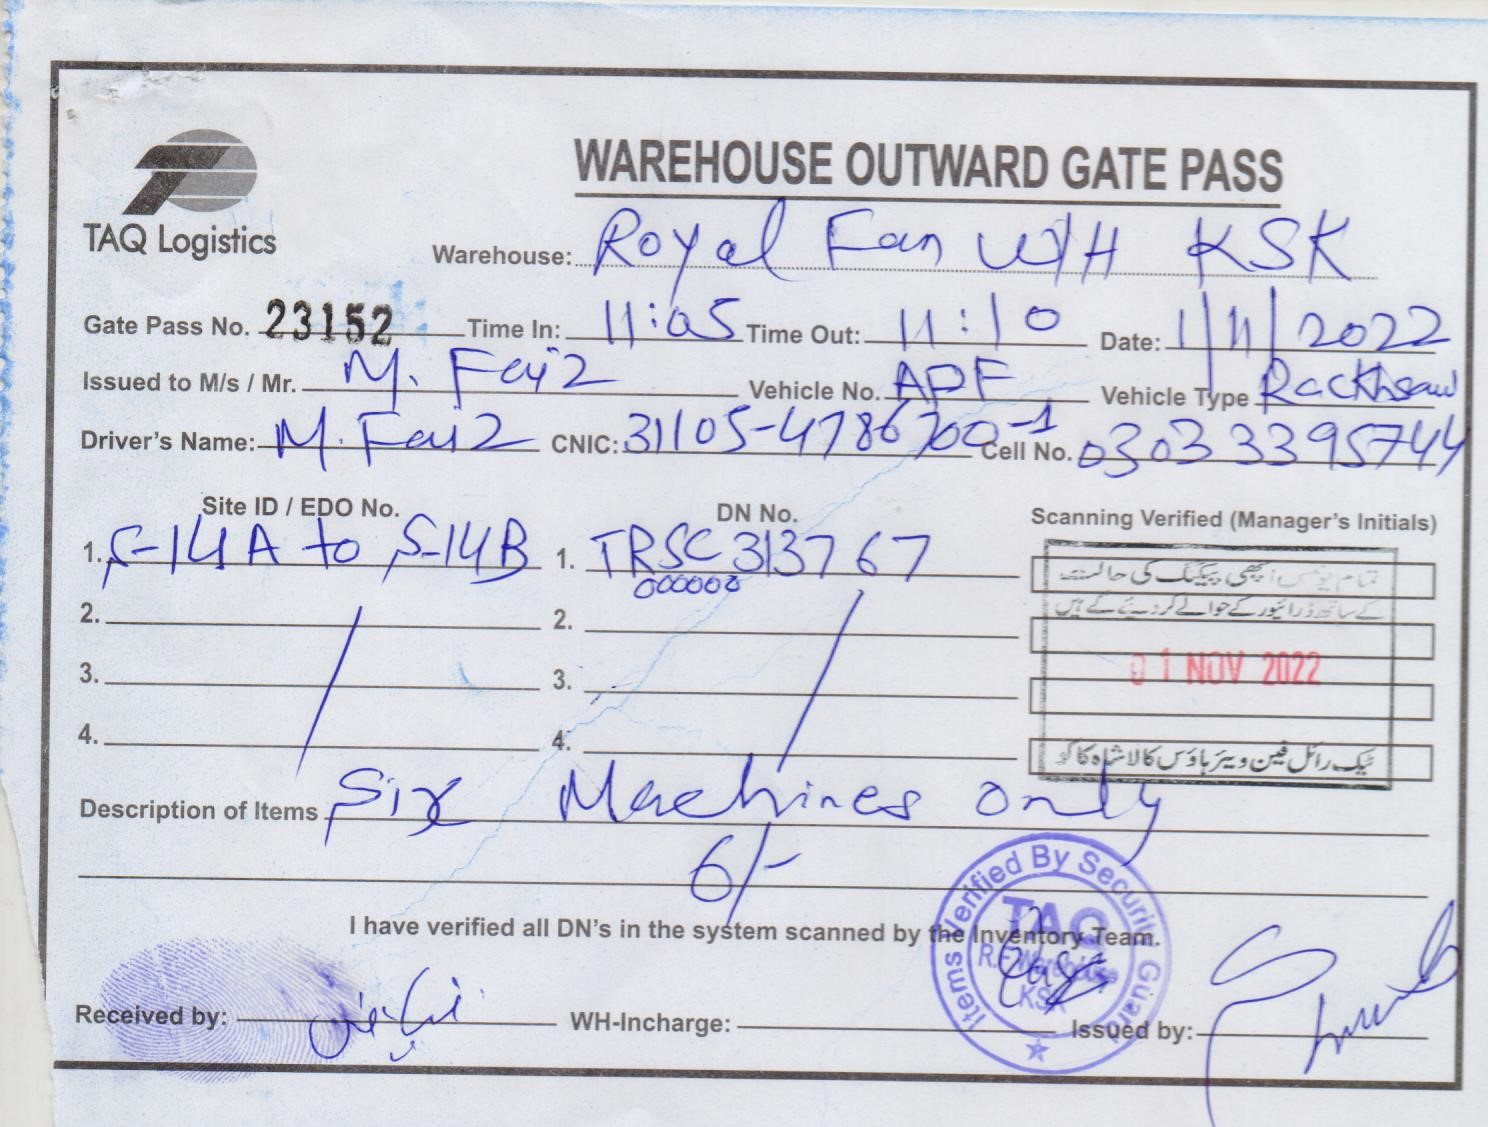 TAQ Logistics
WAREHOUSE OUTWARD GATE PASS
Warehouse: Royal Fan W/H KSK
Gate Pass No. 23152 Time In: 11:05 Time Out: 11:10 Date: 1/11/2022
Issued to M/s / Mr. M. Faiz Vehicle No. APF Vehicle Type Rackhsaw
Driver's Name: M. Faiz CNIC: 31105-4786700-1 Cell No. 03033395744
Site ID / EDO No. DN No. Scanning Verified (Manager's Initials)
1. S-14A to S-14B 1. TRSC313767
000000
تمام یونٹس اچھی پیکنگ کی حالت
کے ساتھ ڈرائیور کے حوالے کر دیئے گئے ہیں
2. 2.
01 NOV 2022
3. 3.
4. 4.
ٹیک رائل فین ویئر ہاؤس کالا شاہ کاکو
Description of Items Six Machines only
6/-
I have verified all DN's in the system scanned by the Inventory Team.
Items Verified By Security Guard
TAQ
R.F Warehouse
KSK
Received by: WH-Incharge: Issued by: